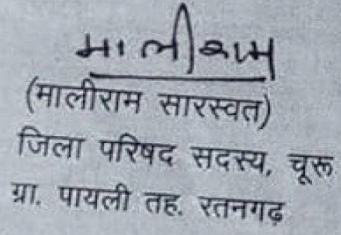 मालीराम
(मालीराम सारस्वत)
जिला परिषद सदस्य, चूरू
ग्रा. पायली तह. रतनगढ़